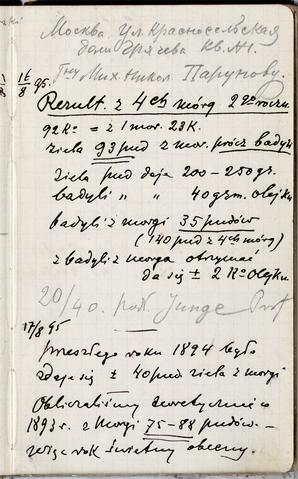 Москва. Ул. Красносельская
домъ Грачева Кв. № 1.
Гну Мих. Никол. Парунову.
1/8 18/8 95.
Result. z 4ch mórg 2go roczn.
92 K° = z 1 mor. 23 K.
ziela 93 pud z mor. prócz badyli
ziela pud daje 200–250 gr.
badyli „ „ 40 grm. olejku
badyli z morgi 35 pudów
(140 pud z 4ch mórg)
z badyli z morga otrzymać
da się ± 2 K° olejku.
20/40. Junge Prof
17/8 95
przeszłego roku 1894 było
zdaje się ± 40 pud ziela z morgi
Obliczaliśmy teoretycznie w
1893 r. z morgi 75–88 pudów –
więc rok świetny obecny.